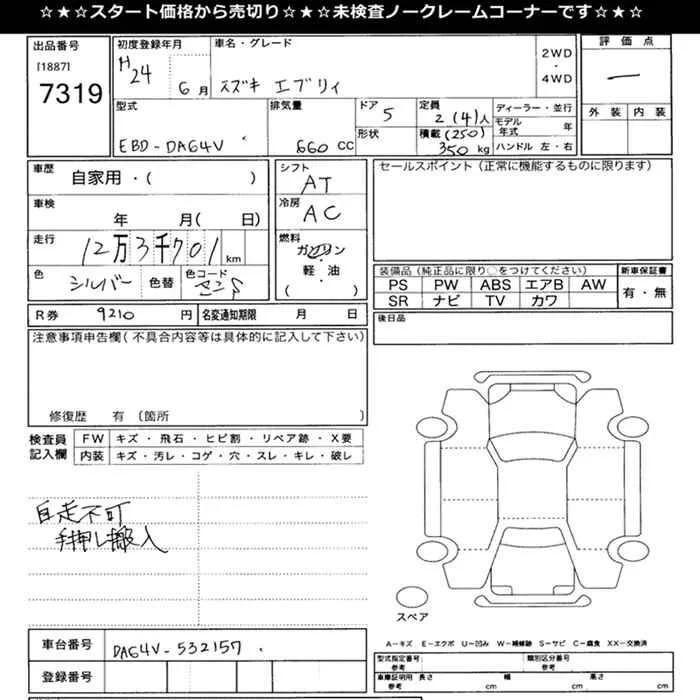 ☆★☆スタート価格から売切り☆★☆未検査ノークレームコーナーです☆★☆
出品番号
[1887]
7319
初度登録年月
H24
6月
車名・グレード
スズキ エブリィ
2WD
・
4WD
評価点
一
外装 内装
型式
EBD-DA64V
排気量
660 CC
ドア
5
形状
定員
2(4)人
積載(250)
350 kg
ディーラー・並行
モデル年式 年
ハンドル 左・右
車歴
自家用・( )
車検
年 月( 日)
走行
12万3千701 km
色
シルバー
色替
色コード
シフト
AT
冷房
AC
燃料
ガソリン
・
軽・油
( )
セールスポイント(正常に機能するものに限ります)
装備品(純正品に限り○をつけてください)
PS PW ABS エアB AW
SR ナビ TV カワ
新車保証書
有・無
R券 9210 円
名変通知期限 月 日
後日品
注意事項申告欄(不具合内容等は具体的に記入して下さい)
修復歴 有(箇所 )
検査員
記入欄
FW キズ・飛石・ヒビ割・リペア跡・X要
内装 キズ・汚レ・コゲ・穴・スレ・キレ・破レ
自走不可
手押し搬入
スペア
車台番号 DA64V-532157
登録番号
A-キズ E-エクボ U-凹み W-補修跡 S-サビ C-腐食 XX-交換済
型式指定番号
参考
類別区分番号
車庫証明用
参考
長さ cm
幅 cm
高さ cm